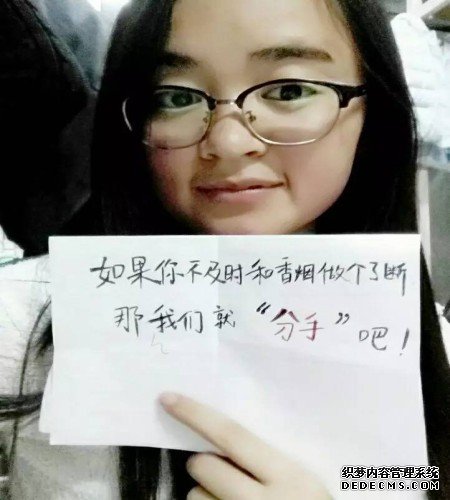 如果你不及时和香烟做个了断
那我们就“分手”吧！
织梦内容管理系统
DEDECMS.COM